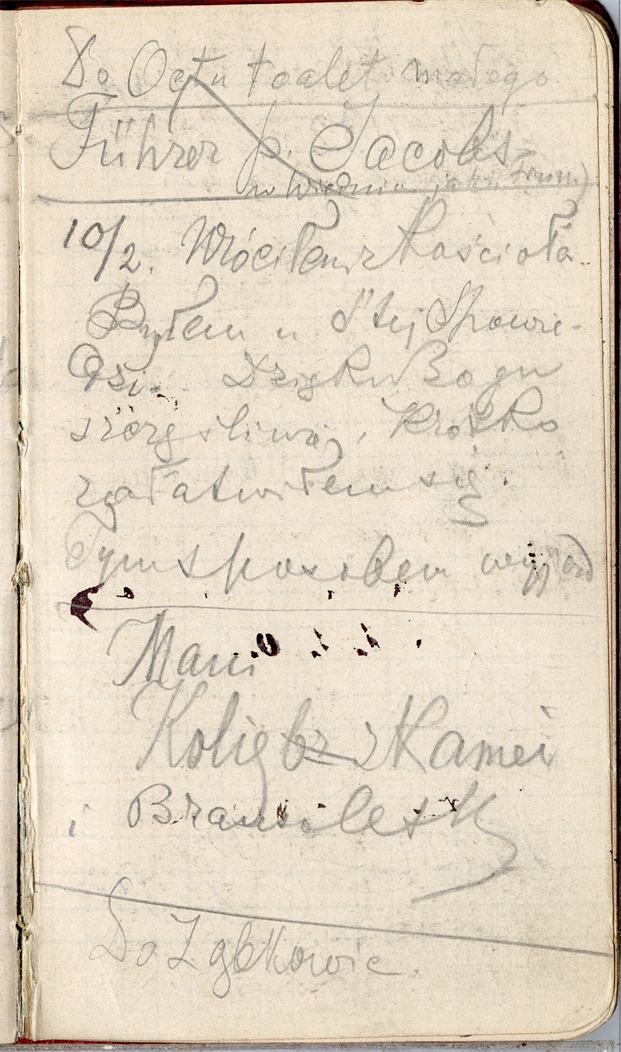 Do Octu toalet małego
Führer p. Jacobs
w Wiedniu
10/2. Wróciłem z Kościoła.
Byłem u S'tej Spowie-
dzi. Dzięki Bogu
szczęśliwą, Krótko
załatwiłem się.
Tym sposobem wyjazd
Mani
Kolię br z Kamei
i Bransoletk
Do Ząbkowic.